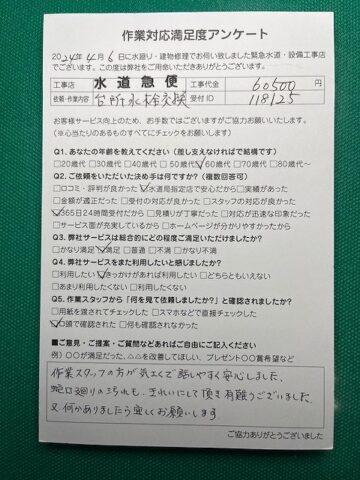 作業対応満足度アンケート
2024年4月6日に水廻り・建物修理でお伺い致しました緊急水道・設備工事店
でございます。この度は弊社をご用命いただきありがとうございます。
工事店 水道急便 工事代金 60500円
依頼・作業内容 台所水栓交換 受付ID 118125
お客様サービス向上のため、お手数ではございますがご協力お願いいたします。
(※心当たりのあるものすべてにチェックをお願いします)
Q1. あなたの年齢を教えてください(差し支えなければで結構です)
□20歳代 □30歳代 □40歳代 □50歳代 ☑60歳代 □70歳代 □80歳代〜
Q2. ご依頼をいただいた決め手は何ですか?(複数回答可)
□口コミ・評判が良かった ☑水道局指定店で安心だから □実績があった
□金額が適正だった □受付の対応が良かった □スタッフの対応が良かった
☑365日24時間受付だから □見積りが丁寧だった □対応が迅速な印象だった
□サービス面が充実しているから □ホームページが分かりやすかったから
Q3. 弊社サービスは総合的にどの程度ご満足いただけましたか?
□かなり満足 ☑満足 □普通 □不満 □かなり不満
Q4. 弊社サービスをまた利用したいと感じましたか?
□利用したい ☑きっかけがあれば利用したい □どちらともいえない
□あまり利用したくない □利用したくない
Q5. 作業スタッフから「何を見て依頼しましたか?」と確認されましたか?
□用紙を渡されてチェックした □スマホなどで直接チェックした
☑口頭で確認された □何も確認されなかった
■ご意見・ご提案・ご質問などあればご自由にご記入ください
例)○○が満足だった、△△を改善してほしい、プレゼント○○賞希望など
作業スタッフの方が気さくで話しやすく安心しました。
蛇口廻りの汚れも、きれいにして頂き有難うございました。
又何かありましたら宜しくお願いします。
ご協力ありがとうございました